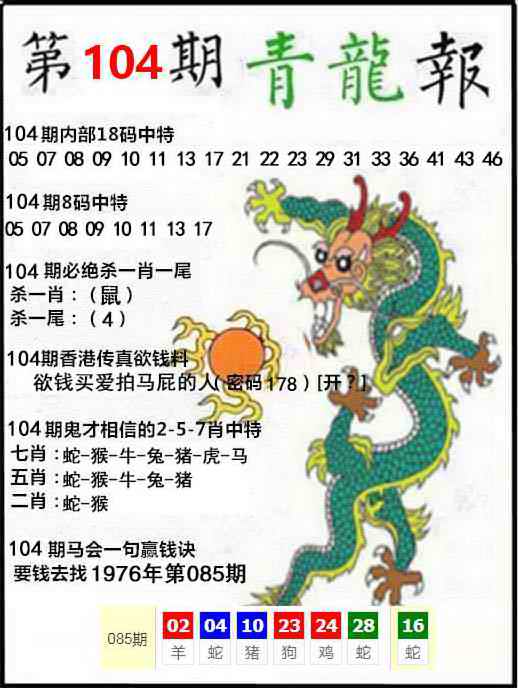 第104期 青龍報
104期内部18码中特
05 07 08 09 10 11 13 17 21 22 23 29 31 33 36 41 43 46
104期8码中特
05 07 08 09 10 11 13 17
104期必绝杀一肖一尾
杀一肖：（鼠）
杀一尾：（4）
104期香港传真欲钱料
欲钱买爱拍马屁的人（密码178）[开？]
104期鬼才相信的2-5-7肖中特
七肖：蛇-猴-牛-兔-猪-虎-马
五肖：蛇-猴-牛-兔-猪
二肖：蛇-猴
104期马会一句赢钱诀
要钱去找1976年第085期
085期 02 04 10 23 24 28 16
羊 蛇 猪 狗 鸡 蛇 蛇